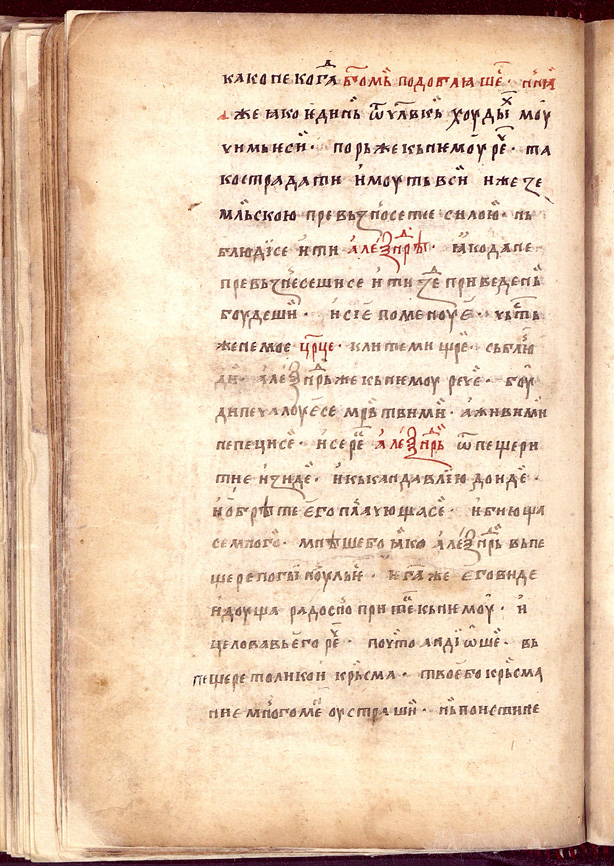 како некогда бг҃омь подобꙗше с҇е · нн҃ꙗ
же ꙗко ѥдинь ѿ чл҃вкь хоудых моу
чимь ѥси · порь же кь нѥмоу реч҇ · та
ко страдати имоуть вси иже зе
мльскою превьзносете се силою · нь
блюди се и ти алеѯандре · ꙗко да не
превьзнесеши се и ти зде приведень
боудеши · и сїе поменоу ѥ · чьсть
жене мое цр҃це · клитеми цр҃е · сьблю
ди · алеѯандрь же кь нѥмоу рече · боу
ди печалоуе се мр҃твими · а живими
не пеци се · и се рекь алеѯандрь ѿ пещери
тие изиде · и кь кандавлїю доиде ·
и обрѣте ѥго плачуща се · и бнюща
се много · мнѣше бо ꙗко алеѯандрь вь пе
щере погыноуль ѥ · и гдаже ѥго виде
идоуща радосно притече кь нѥмоу · и
целовавь ѥго реч҇ · поучто андїѡше · вь
пещере толико икрьсма · твое бо крьсма
ние много ме оустраши · нь поистине